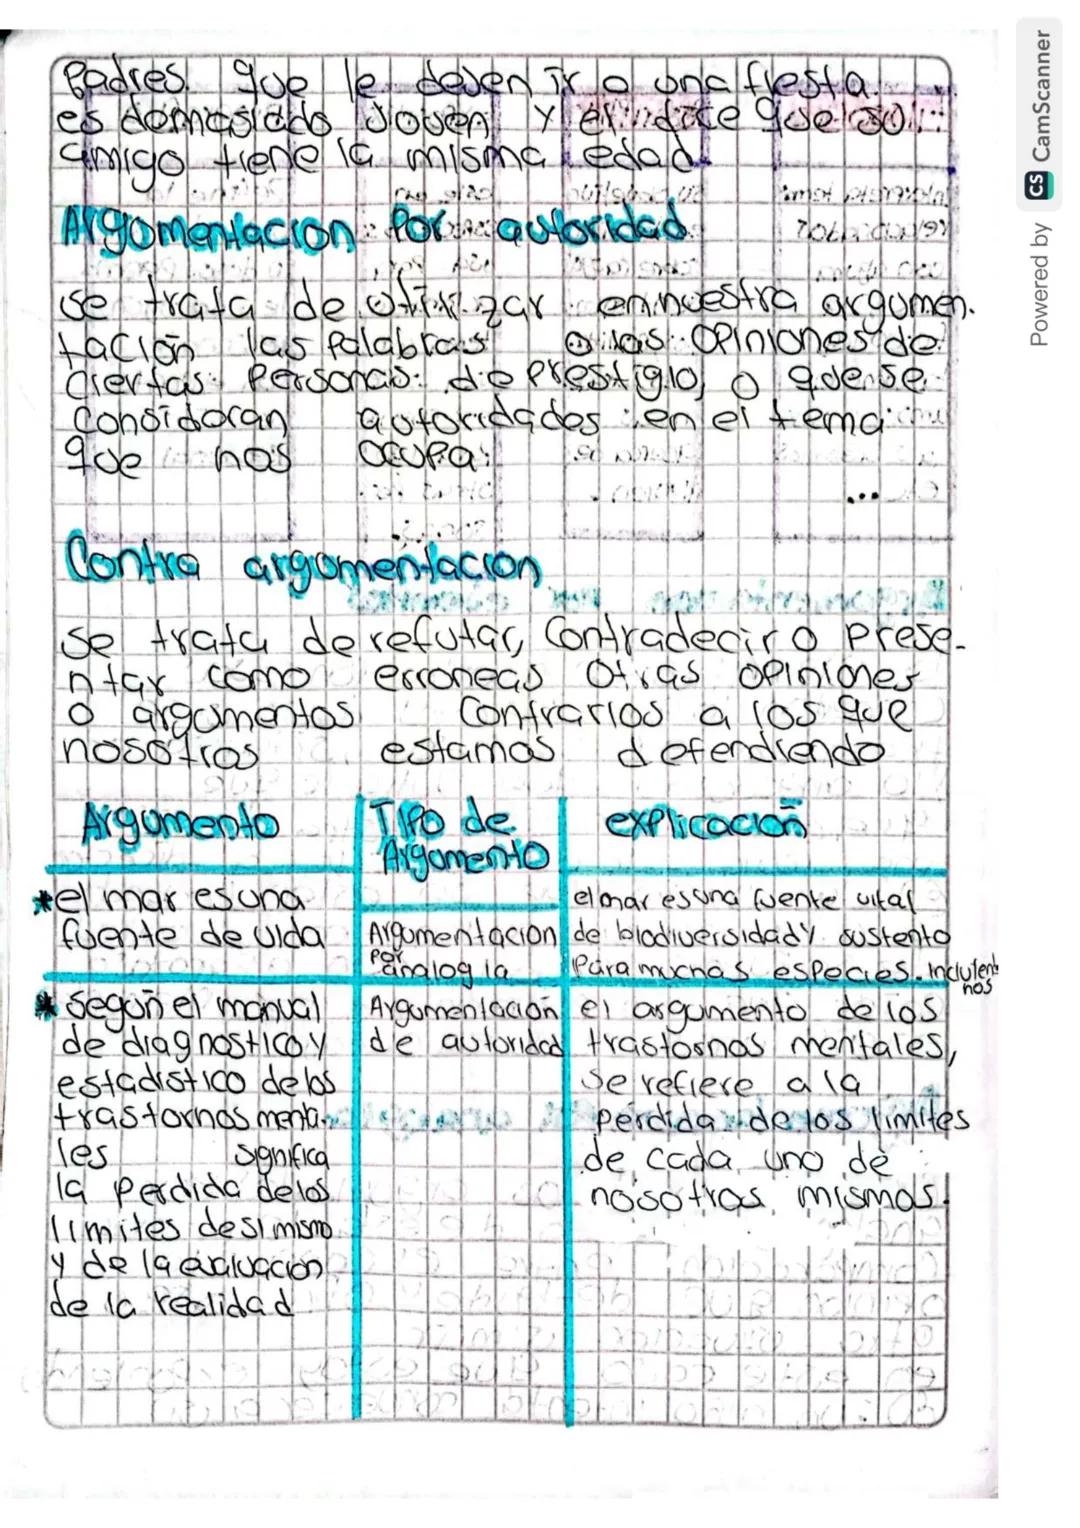 Padres. que le dejen ir a una fiesta.
es demasiado joven y el dice que su
amigo tiene la misma edad.
Argumentacion Por autoridad
se trata de utilizar en nuestra argumen.
tación las Palabras o las OPiniones de
ciertas Personas de Prestigio, o que se
Considoran autoridades en el tema
que nos ocupa.
Contra argumentacion
se trata de refutar, Contradecir o Prese-
ntar como erroneas Otras oPiniones
o argumentos Contrarios a los que
nosotros estamos defendiendo
Argumento
TiPo de
Argumento
exPlicación
*el mar es una
fuente de vida
Argumentacion
Por
analogia
el mar es una fuente vital
de biodiversidad y sustento
Para muchas esPecies. Inclullen
nos
* Según el manual
de diagnostico y
estadistico de los
trastornos menta-
les significa
la Perdida de los
limites de si mismo
y de la evaluacion
de la realidad
Argumentación
de autoridad
el argumento de los
trastornos mentales,
se refiere a la
Perdida de los limites
de cada uno de
nosotros mismos.
Powered by CS CamScanner